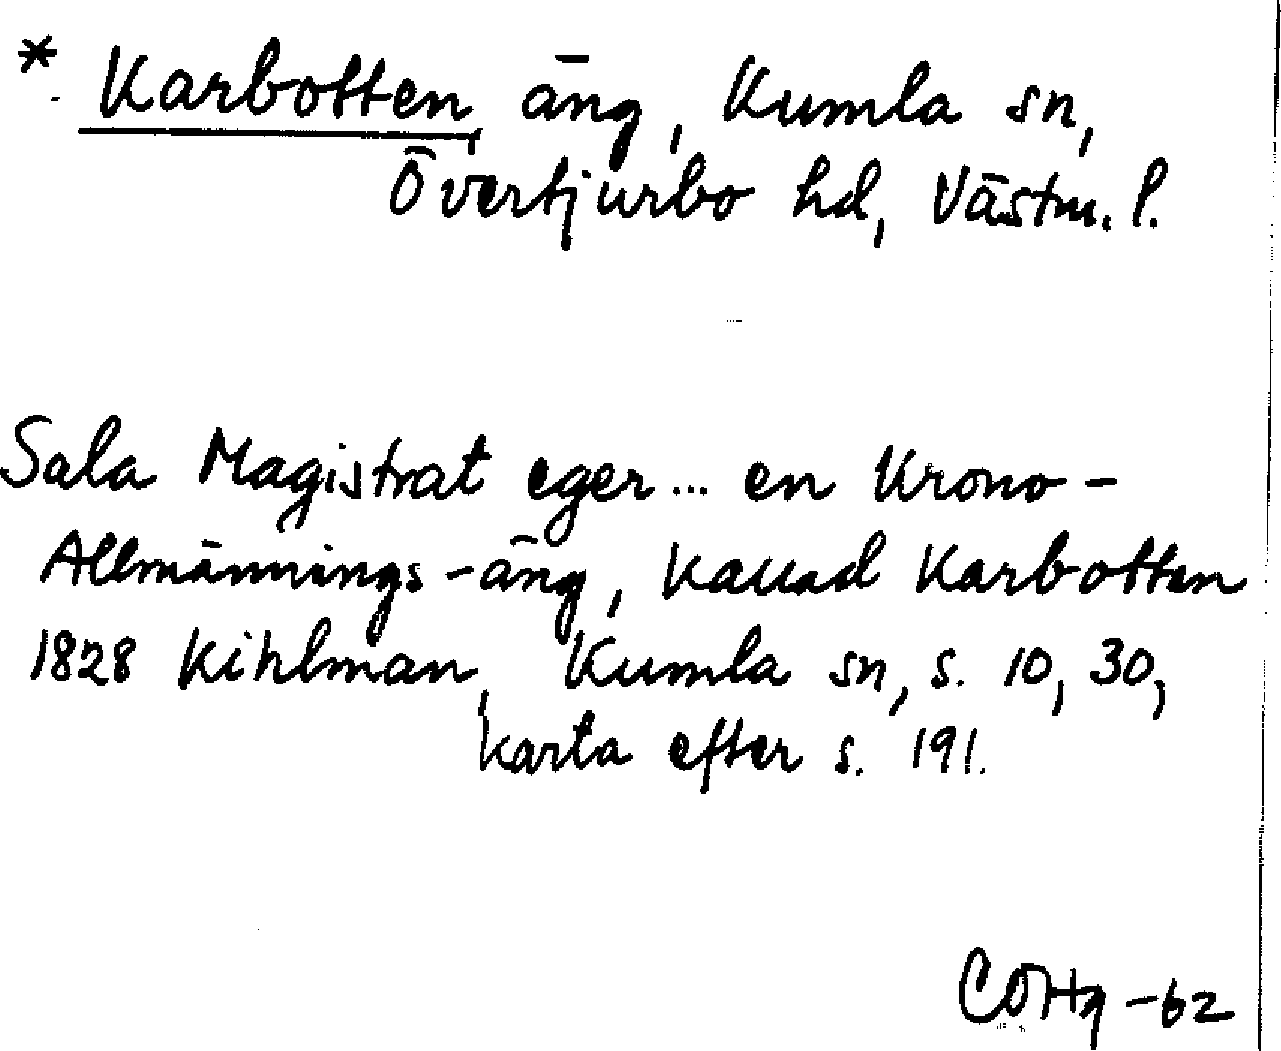 * Karbotten, äng, Kumla sn,
Övertjurbo hd, Västm. l.
Sala Magistrat eger... en Krono-
Allmännings-äng, kallad Karbotten
1828 Kihlman, Kumla sn, s. 10, 30,
karta efter s. 191.
-62